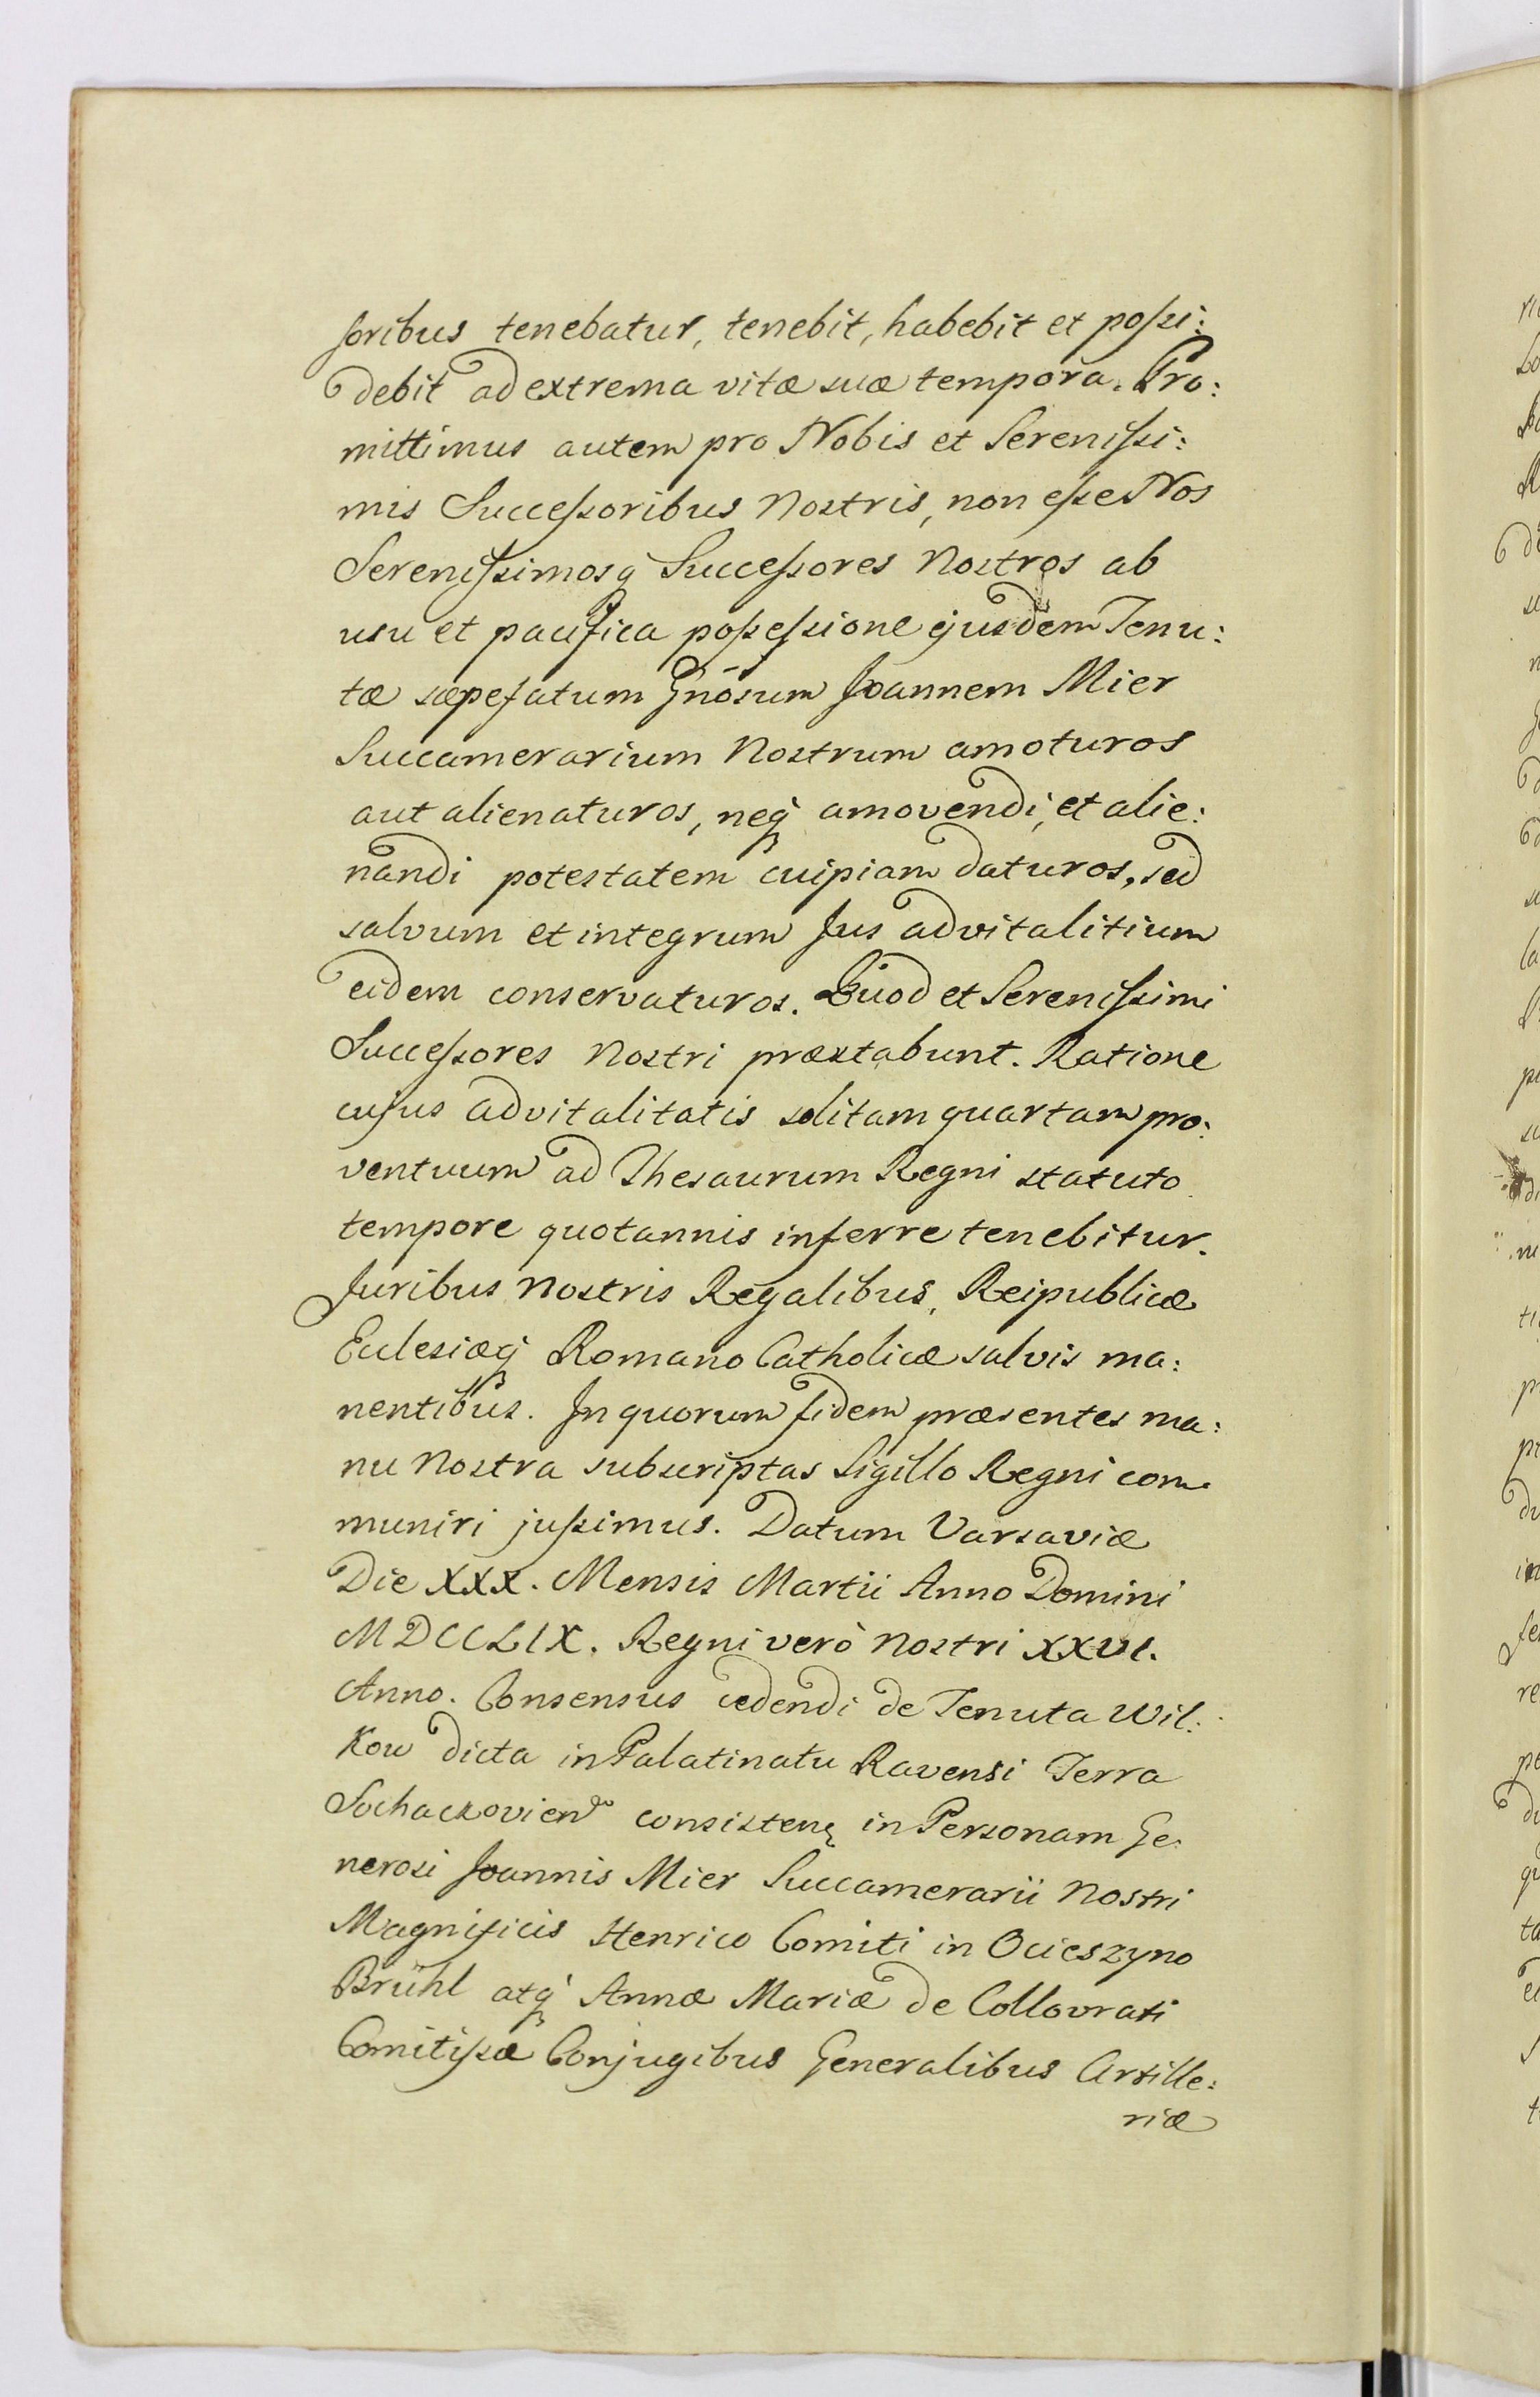 soribus tenebatur, tenebit, habebit et possi:
debit ad extrema vitæ suæ tempora. Pro:
mittimus autem pro Nobis et Serenissi:
mis Successoribus Nostris, non esse Nos
Serenissimosq́ Successores Nostros ab
usu et pacifica possessione ejusdem Tenu:
tæ sæpefatum Gnōsum Joannem Mier
Succamerarium Nostrum amoturos
aut alienaturos, neq́ amovendi, et alie:
nandi potestatem cuipiam daturos, sed
salvum et integrum Jus advitalitium
eidem conservaturos. Quod et Serenissimi
Successores Nostri præstabunt. Ratione
cujus advitalitatis solitam quartam pro:
ventuum ad Thesaurum Regni statuto
tempore quotannis inferre tenebitur.
Juribus Nostris Regalibus, Reipublicæ
Ecclesiæq́ Romano Catholicæ salvis ma:
nentibus. In quorum fidem præsentes ma:
nu Nostra subscriptas Sigillo Regni com:
muniri jussimus. Datum Varsaviæ
Die XXX. Mensis Martii Anno Domini
MDCCLIX. Regni verò Nostri XXVI.
Anno. Consensus cedendi de Tenuta Wil:
kow dicta in Palatinatu Ravensi Terra
Sochaczovien consisten in Personam Ge:
nerosi Joannis Mier Succamerarii Nostri
Magnificis Henrico Comiti in Ocieszyno
Brühl atq́ Annæ Mariæ de Collovrati
Comitissæ Conjugibus Generalibus Artille:
riæ